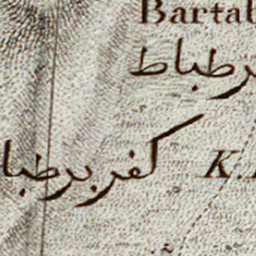 Bartab
برطباط
كفر برطبا
K.